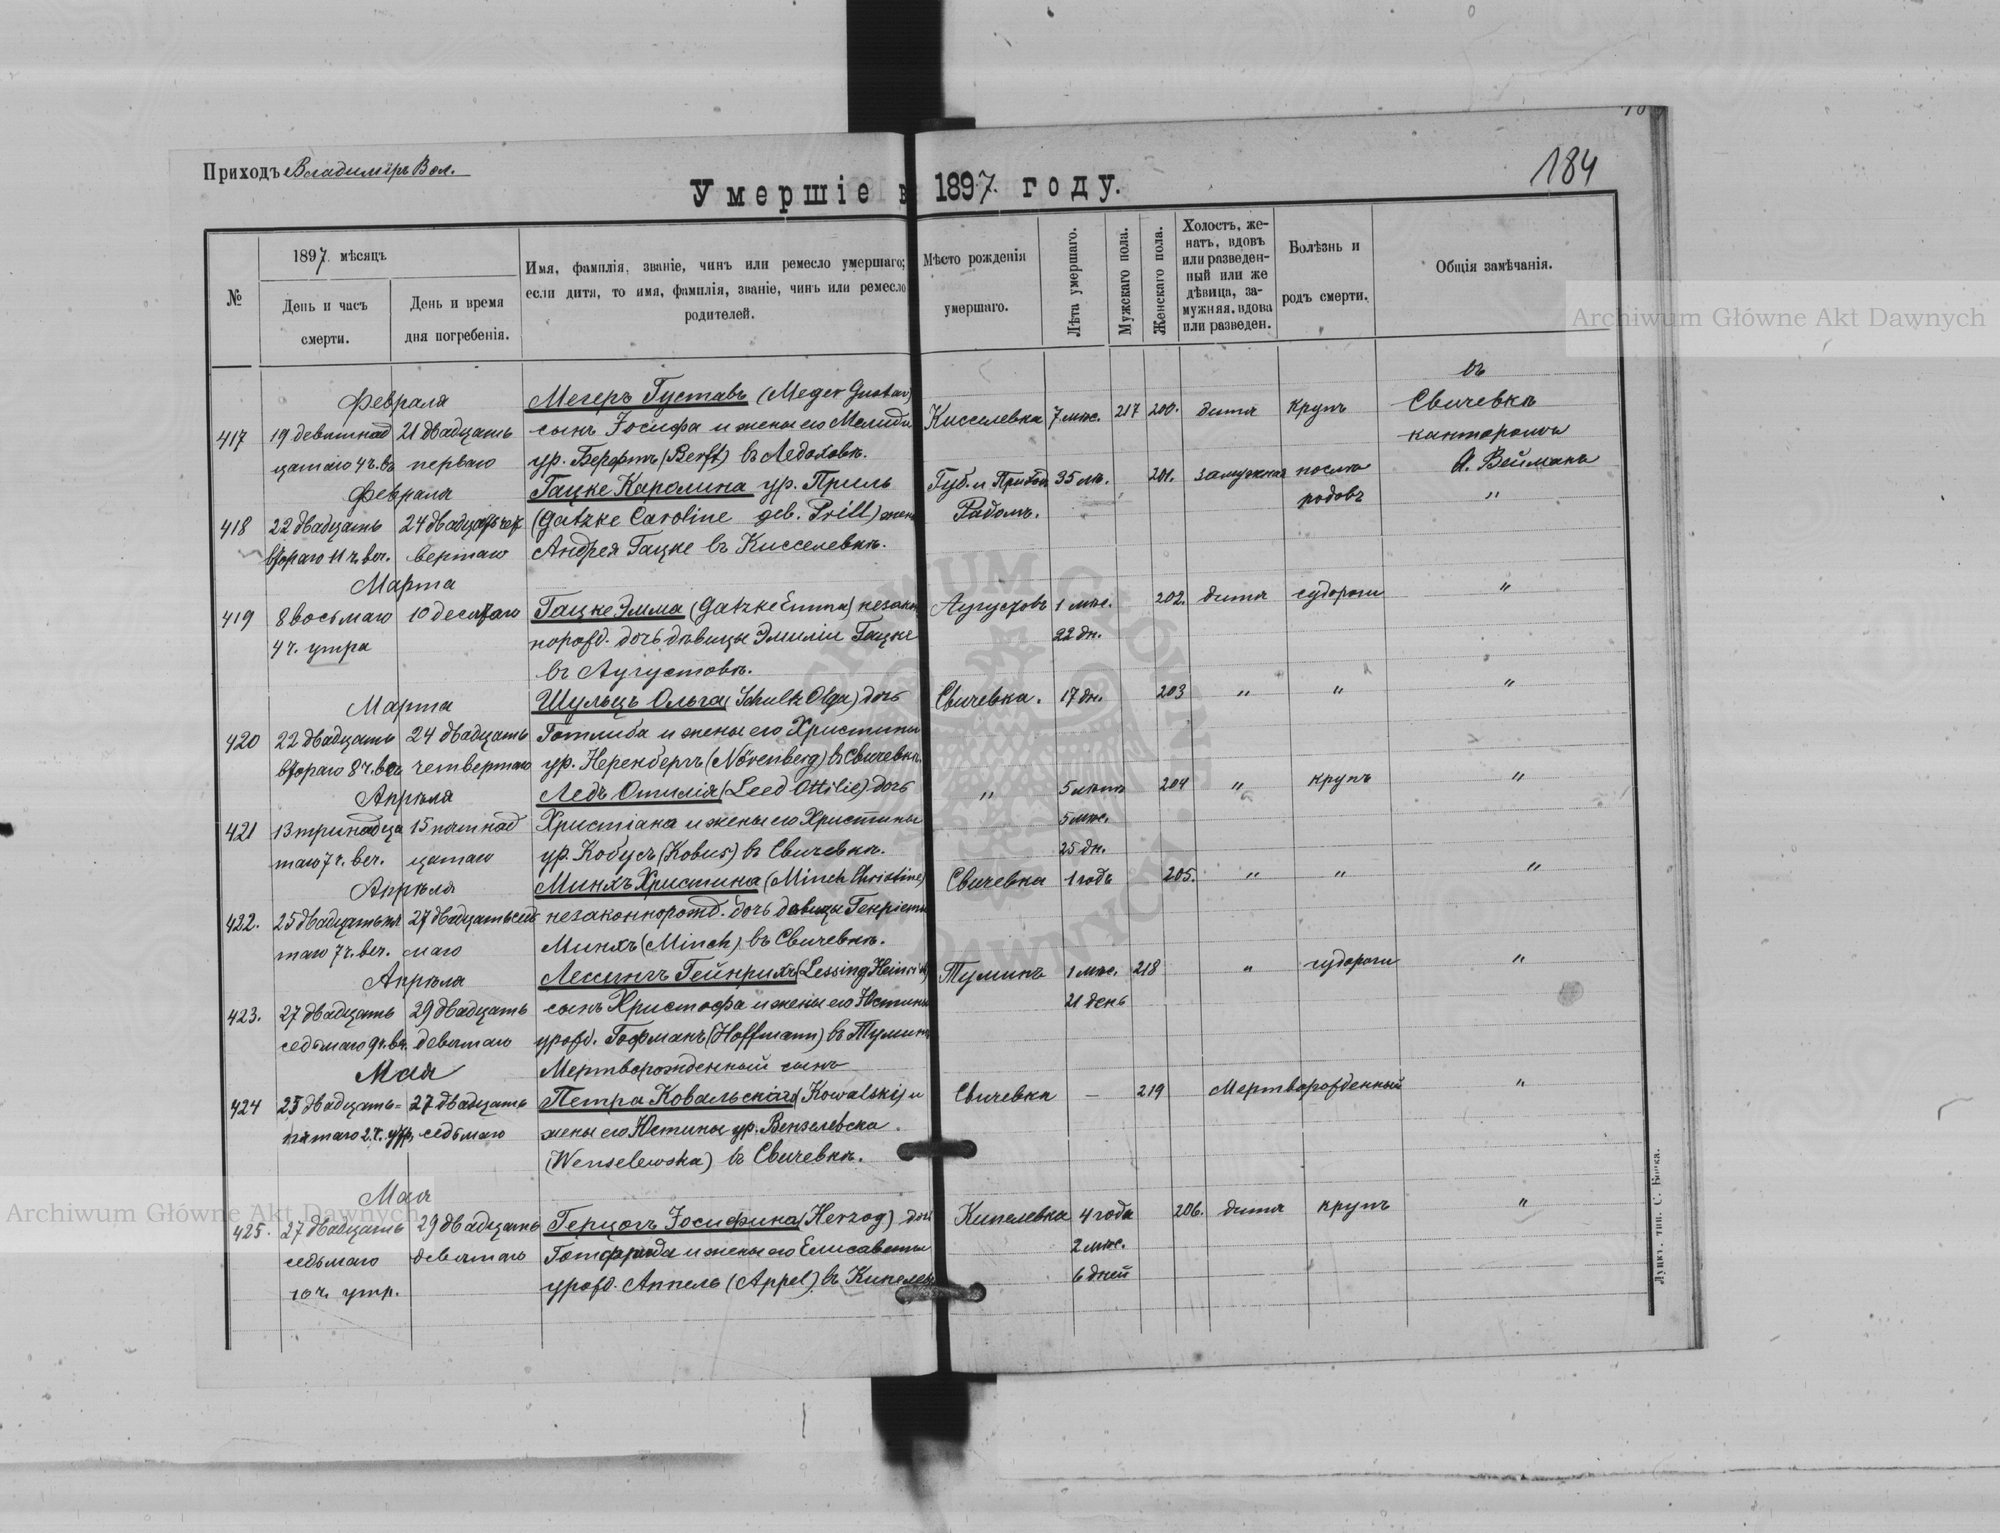 184
Приходъ Владимiръ Вол.
Умершіе въ 1897 году.
№
1897 мѣсяцъ
День и часъ смерти.
День и время дня погребенія.
Имя, фамилія, званіе, чинъ или ремесло умершаго;
если дитя, то имя, фамилія, званіе, чинъ или ремесло
родителей.
Мѣсто рожденія
умершаго.
Лѣта умершаго.
Мужскаго пола.
Женскаго пола.
Холостъ, же-
натъ, вдовъ
или разведен-
ный или же
дѣвица, за-
мужняя, вдова
или разведен.
Болѣзнь и
родъ смерти.
Общія замѣчанія.
417
Февраля
19 девятнад 21 двадцать
цатаго 4 ч. в. перваго
Мегеръ Густавъ (Meger Gustav)
сынъ Іосифа и жены его
ур. (Berft) въ Ледоховкѣ.
Киселевка 7 мѣс. 217 200. дитя крупъ
въ
Свичевкѣ
канторомъ
А. Вейманъ
418
Февраля
22 двадцать 24 двадцать чет
втораго 11 ч. веч. вертаго
Гацке Каролина ур.Приль
(Gatzke Caroline geb. Prill) жена
Андрея Гацке въ Кисселевкѣ.
Губ. и Приход
Радомъ.
35 лѣ. 201. замужняя послѣ
родовъ
"
419
Марта
8 восьмаго 10 десятаго
4 ч. утра
Гацке Эмма (Gatzke Emma) незакон
норожд. дочь дѣвицы Эмиліи Гацке
въ Аугустовкѣ.
Аугустовъ 1 мѣс.
22 дн.
202. дитя судороги "
420
Марта
22 двадцать 24 двадцать
втораго 8 ч. веч. четвертаго
Шульцъ Ольга (Schultz Olga) дочь
Готлиба и жены его Христины
ур. Неренбергъ (Nörenberg) въ Свичевкѣ.
Свичевка. 17 дн. 203 " " "
421
Апрѣля
13 тринадца 15 пятнад
таго 7 ч. веч. цатаго
Ледъ Отилія (Leed Ottilie) дочь
Христіана и жены его Христины
ур. Кобусъ (Kobus) въ Свичевкѣ.
" 5 лѣтъ
5 мѣс.
25 дн.
204 " крупъ "
422.
Апрѣля
25 двадцать пя 27 двадцать седь
таго 7 ч. веч. маго
Минхъ Христина (Minch Christine)
незаконнорожд. дочь дѣвицы Генріеты
Минхъ (Minch) въ Свичевкѣ.
Свичевка 1 годъ 205. " " "
423.
Апрѣля
27 двадцать 29 двадцать
седьмаго 9 ч. вч. девятаго
Лессингъ Гейнрихъ (Lessing Heinrich)
сынъ Христофа и жены его Юстины
урожд. Гофманъ (Hoffmann) въ Туминѣ
Туминъ 1 мѣс. 218 " судороги "
21 день
424
Мая
25 двадцать= 27 двадцать
пятаго 2 ч. утр. седьмаго
Мертворожденный сынъ
Петра Ковальскаго (Kowalski) и
жены его Юстины ур. Вензелевска
(Wenselewska) въ Свичевкѣ.
Свичевка — 219 Мертворожденный "
425.
Мая
27 двадцать 29 двадцать
седьмаго девятаго
10 ч. утр.
Герцогъ Іосифина (Herzog) дочь
Готфрида и жены его Елисаветы
урожд. Аппель (Appel) въ Кипелевкѣ
Кипелевка 4 года
2 мѣс.
6 дней
206. дитя крупъ "
Луцкъ. тип. С. Бойка.
Archiwum Główne Akt Dawnych
Archiwum Główne Akt Dawnych
ARCHIWUM GŁÓWNE AKT DAWNYCH